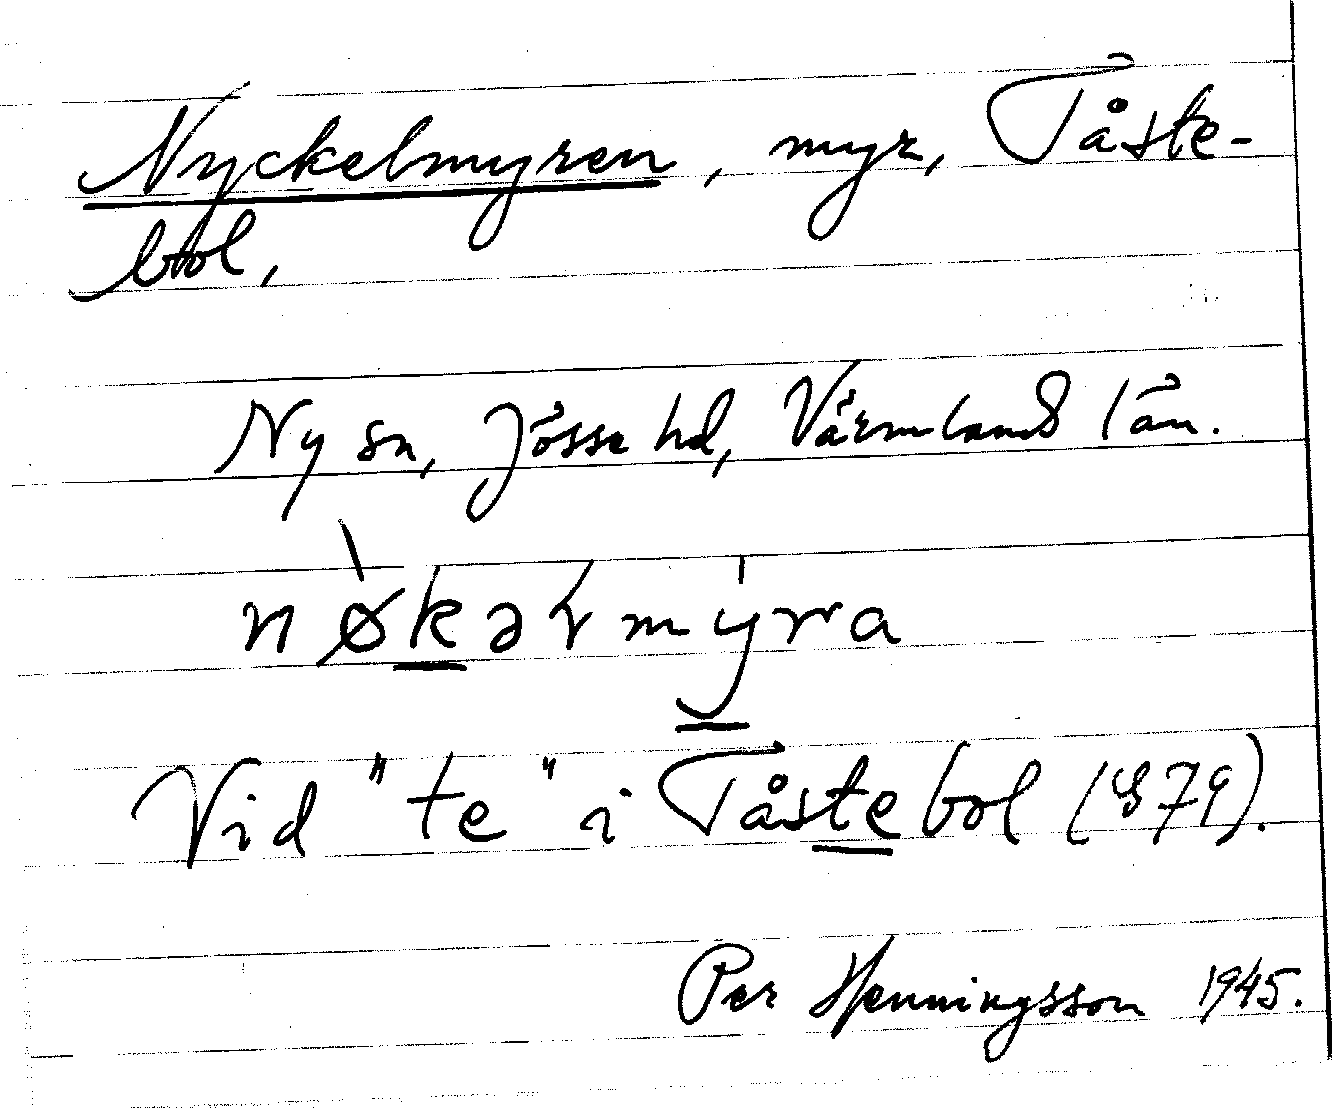 Nyckelmyren, myr, Tåste-
bol,
Ny sn, Jösse hd, Värmlands län.
nøkəɬmýra
Vid "te" i Tåstebol (S79).
Per Henningsson 1945.